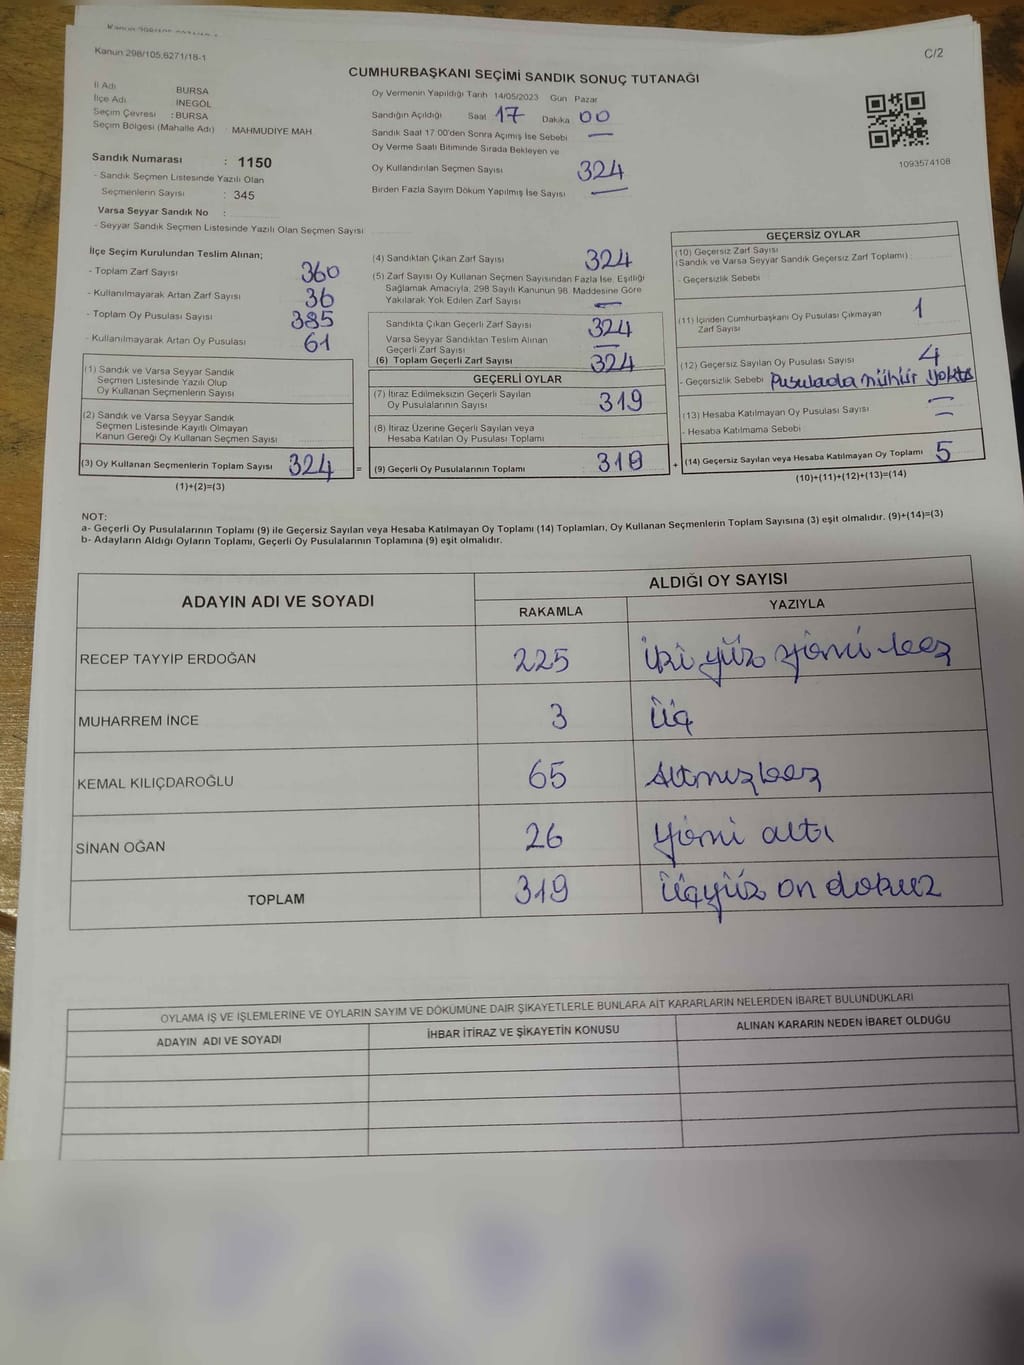 Kanun 298/105;6271/18-1
C/2
CUMHURBAŞKANI SEÇİMİ SANDIK SONUÇ TUTANAĞI
İl Adı BURSA
İlçe Adı İNEGÖL
Seçim Çevresi : BURSA
Seçim Bölgesi (Mahalle Adı) : MAHMUDİYE MAH.
Sandık Numarası : 1150
- Sandık Seçmen Listesinde Yazılı Olan
Seçmenlerin Sayısı : 345
Varsa Seyyar Sandık No :
- Seyyar Sandık Seçmen Listesinde Yazılı Olan Seçmen Sayısı
Oy Vermenin Yapıldığı Tarih 14/05/2023 Gün Pazar
Sandığın Açıldığı Saat 17 Dakika 00
Sandık Saat 17:00'den Sonra Açılmış İse Sebebi —
Oy Verme Saati Bitiminde Sırada Bekleyen ve
Oy Kullandırılan Seçmen Sayısı 324
Birden Fazla Sayım Döküm Yapılmış İse Sayısı —
1093574108
İlçe Seçim Kurulundan Teslim Alınan;
- Toplam Zarf Sayısı 360
- Kullanılmayarak Artan Zarf Sayısı 36
- Toplam Oy Pusulası Sayısı 385
- Kullanılmayarak Artan Oy Pusulası 61
(1) Sandık ve Varsa Seyyar Sandık
Seçmen Listesinde Yazılı Olup
Oy Kullanan Seçmenlerin Sayısı
(2) Sandık ve Varsa Seyyar Sandık
Seçmen Listesinde Kayıtlı Olmayan
Kanun Gereği Oy Kullanan Seçmen Sayısı
(3) Oy Kullanan Seçmenlerin Toplam Sayısı 324 =
(1)+(2)=(3)
(4) Sandıktan Çıkan Zarf Sayısı 324
(5) Zarf Sayısı Oy Kullanan Seçmen Sayısından Fazla İse, Eşitliği
Sağlamak Amacıyla, 298 Sayılı Kanunun 98. Maddesine Göre
Yakılarak Yok Edilen Zarf Sayısı —
Sandıkta Çıkan Geçerli Zarf Sayısı 324
Varsa Seyyar Sandıktan Teslim Alınan
Geçerli Zarf Sayısı
(6) Toplam Geçerli Zarf Sayısı 324
GEÇERLİ OYLAR
(7) İtiraz Edilmeksizin Geçerli Sayılan
Oy Pusulalarının Sayısı 319
(8) İtiraz Üzerine Geçerli Sayılan veya
Hesaba Katılan Oy Pusulası Toplamı
(9) Geçerli Oy Pusulalarının Toplamı 319 +
GEÇERSİZ OYLAR
(10) Geçersiz Zarf Sayısı
(Sandık ve Varsa Seyyar Sandık Geçersiz Zarf Toplamı) :
- Geçersizlik Sebebi
(11) İçinden Cumhurbaşkanı Oy Pusulası Çıkmayan 1
Zarf Sayısı
(12) Geçersiz Sayılan Oy Pusulası Sayısı 4
- Geçersizlik Sebebi Pusulada mühür yoktu
(13) Hesaba Katılmayan Oy Pusulası Sayısı —
- Hesaba Katılmama Sebebi —
(14) Geçersiz Sayılan veya Hesaba Katılmayan Oy Toplamı 5
(10)+(11)+(12)+(13)=(14)
NOT:
a- Geçerli Oy Pusulalarının Toplamı (9) ile Geçersiz Sayılan veya Hesaba Katılmayan Oy Toplamı (14) Toplamları, Oy Kullanan Seçmenlerin Toplam Sayısına (3) eşit olmalıdır. (9)+(14)=(3)
b- Adayların Aldığı Oyların Toplamı, Geçerli Oy Pusulalarının Toplamına (9) eşit olmalıdır.
ADAYIN ADI VE SOYADI
ALDIĞI OY SAYISI
RAKAMLA YAZIYLA
RECEP TAYYİP ERDOĞAN 225 iki yüz yirmi beş
MUHARREM İNCE 3 üç
KEMAL KILIÇDAROĞLU 65 Altmışbeş
SİNAN OĞAN 26 yirmi altı
TOPLAM 319 üçyüz on dokuz
OYLAMA İŞ VE İŞLEMLERİNE VE OYLARIN SAYIM VE DÖKÜMÜNE DAİR ŞİKAYETLERLE BUNLARA AİT KARARLARIN NELERDEN İBARET BULUNDUKLARI
ADAYIN ADI VE SOYADI İHBAR İTİRAZ VE ŞİKAYETİN KONUSU ALINAN KARARIN NEDEN İBARET OLDUĞU